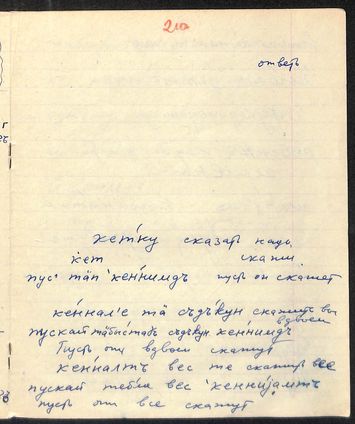 210
ответь
кет́ку сказать надо
кет скажи
пус' тäп кен́нимдъ пусть он скажет
кен́нал'е тä съдъ́кун скажите вы
вдвоем
пускай съдъ́кун кен́нимдъ
Пусть они вдвоем скажут
кен́налтъ вес же скажите все
пускай вес кеннijамтъ
пусть они все скажут